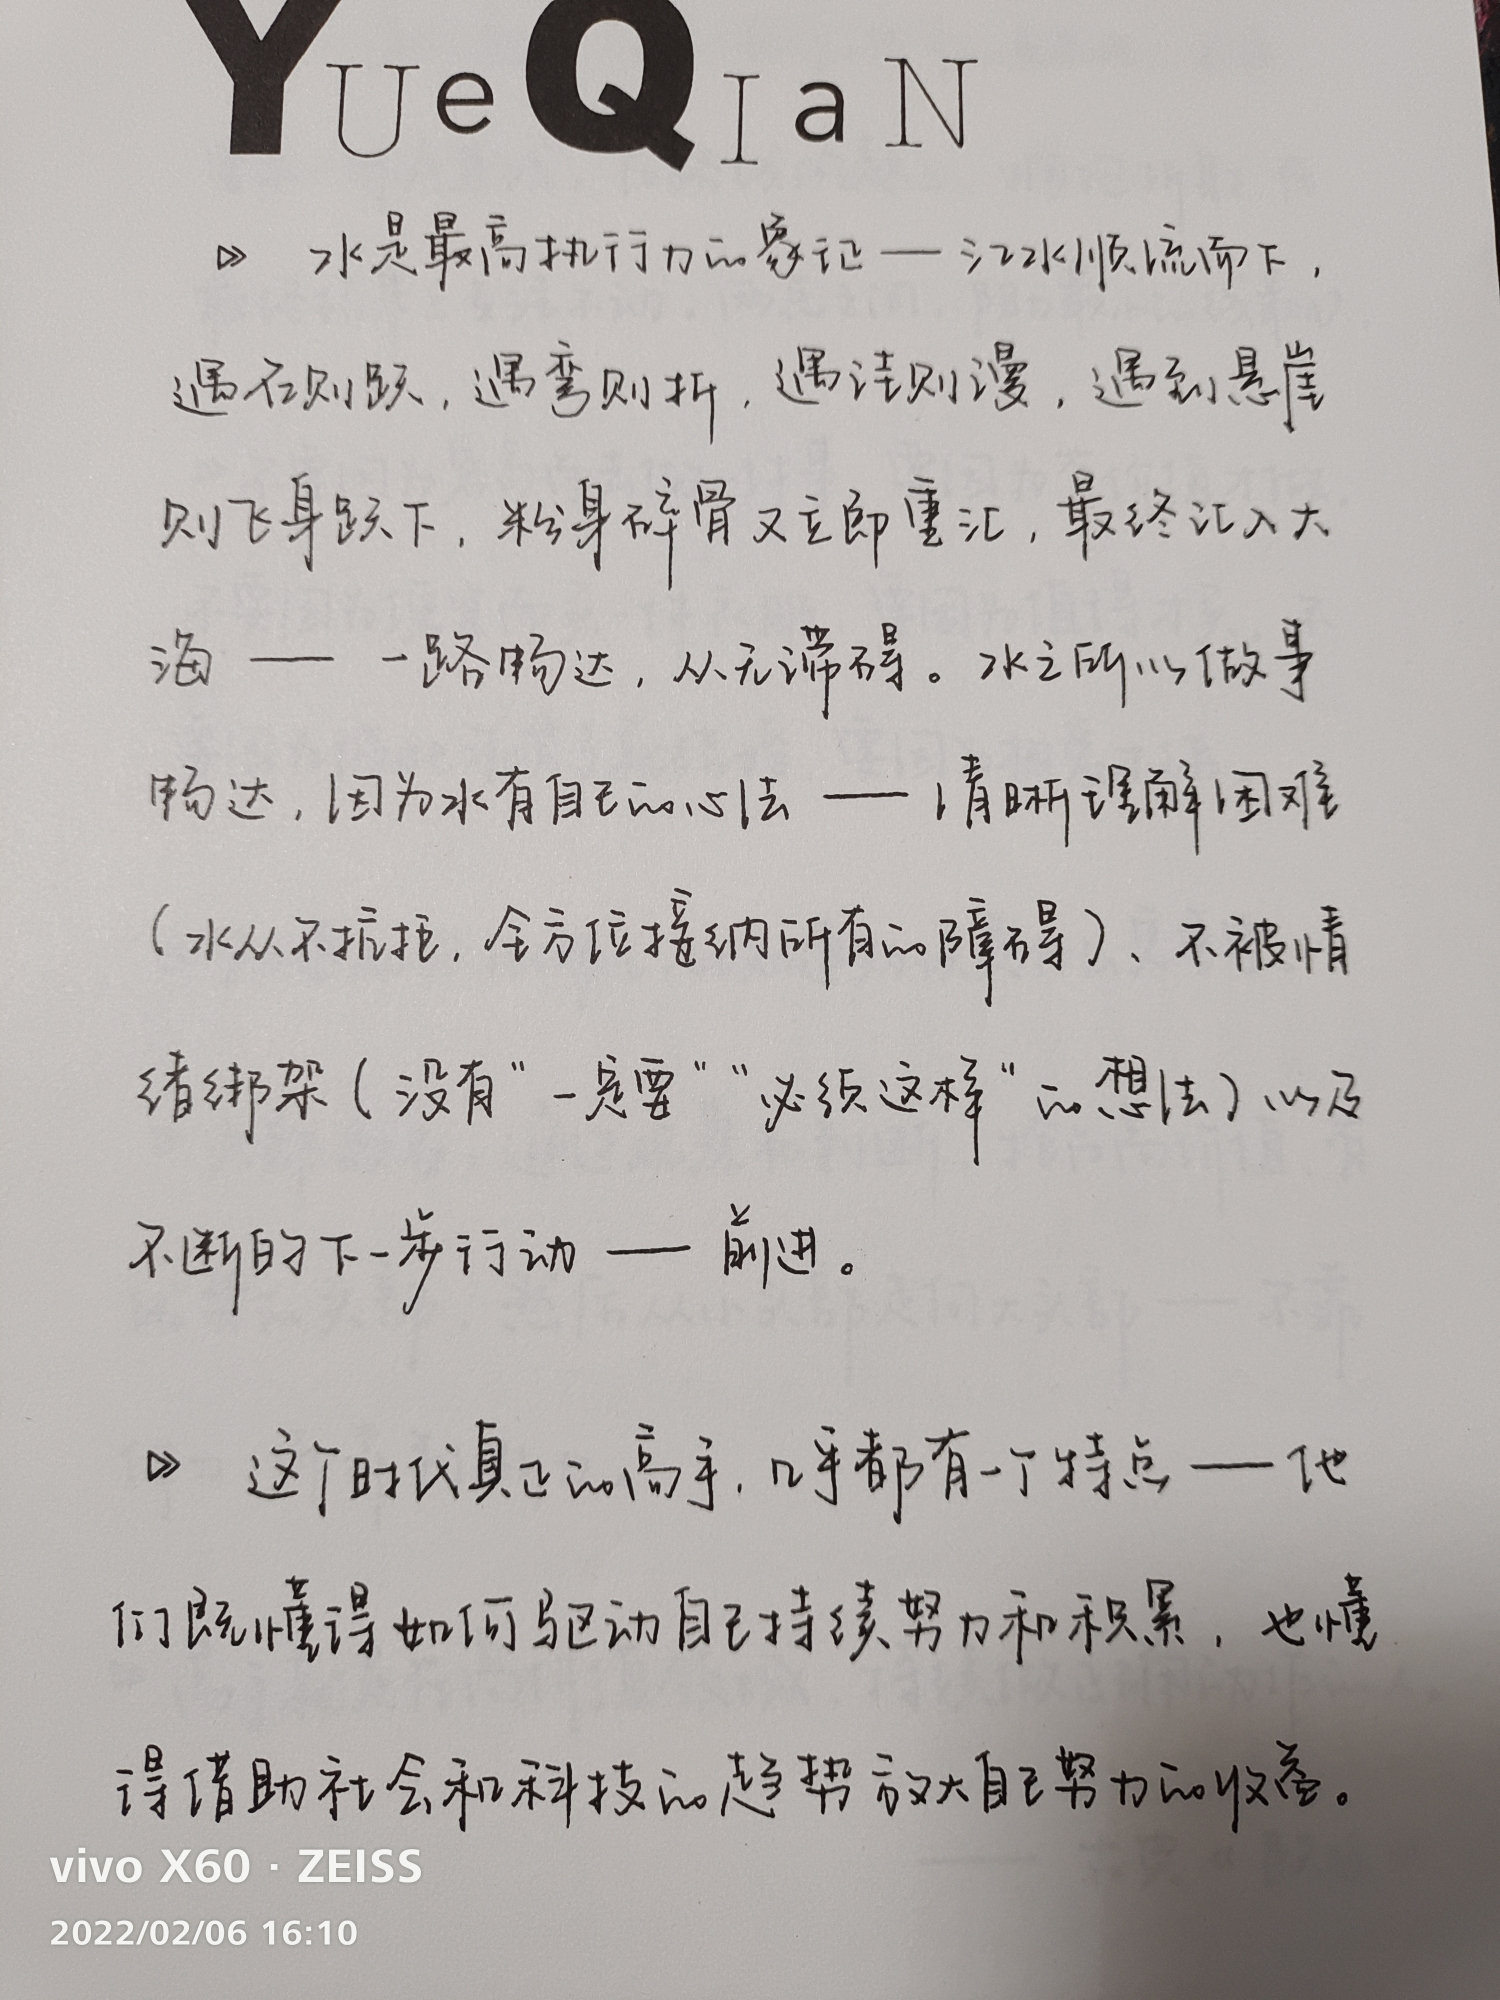 YUeQIaN
▷▷ 水是最高执行力的象征——江水顺流而下，
遇石则跃，遇弯则折，遇洼则漫，遇到悬崖
则飞身跃下，粉身碎骨又立即重汇，最终汇入大
海——一路畅达，从无滞碍。水之所以做事
畅达，因为水有自己的心法——清晰理解困难
（水从不抗拒，全方位接纳所有的障碍）、不被情
绪绑架（没有"一定要""必须这样"的想法）以及
不断的下一步行动——前进。
▷▷ 这个时代真正的高手，几乎都有一个特点——他
们既懂得如何驱动自己持续努力和积累，也懂
得借助社会和科技的趋势放大自己努力的收益。
vivo X60 · ZEISS
2022/02/06 16:10